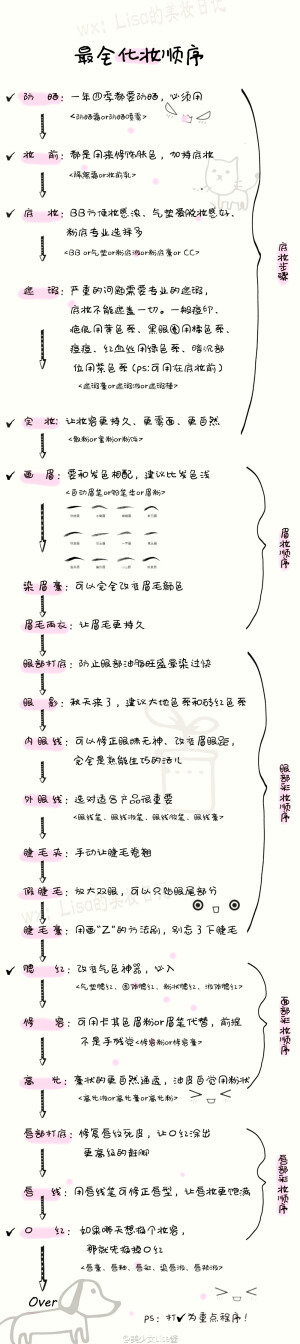 wx: Lisa的美妆日记
最全化妆顺序
✓ 防晒：一年四季都要防晒，必须用
<防晒霜or防晒喷雾>
✓ 妆前：都是用来修饰肤色，加持底妆
<隔离霜or妆前乳>
✓ 底妆：BB方便妆感浓、气垫服帖妆感好、
粉底专业选择多
<BB or气垫or粉底液or粉底膏or CC>
遮瑕：严重的问题需要专业的遮瑕，
底妆不能遮盖一切。一般痘印、
疤痕用黄色系、黑眼圈用橘色系、
痘痘、红血丝用绿色系、暗沉部
位用紫色系(ps:可用在底妆前)
<遮瑕膏or遮瑕液or遮瑕棒>
✓ 定妆：让妆容更持久、更雾面、更自然
<散粉or蜜粉or粉饼>
底妆步骤
✓ 画眉：要和发色相配，建议比发色浅
<自动眉笔or铅笔法or眉粉>
染眉膏：可以完全改变眉毛颜色
眉毛雨衣：让眉毛更持久
眉妆顺序
眼部打底：防止眼部油脂旺盛晕染过快
眼影：秋天来了，建议大地色系和砖红色系
内眼线：可以修正眼睛无神、改变眉眼距，
完全是熟能生巧的活儿
外眼线：选对适合产品很重要
<眼线笔、眼线液笔、眼线胶笔、眼线膏>
睫毛夹：手动让睫毛卷翘
假睫毛：放大双眼，可以只贴眼尾部分
wx: Lisa的美妆日记
睫毛膏：用画“Z”的方法刷，别忘了下睫毛
眼部彩妆顺序
✓ 腮红：改变气色神器，必入
<气垫腮红、固体腮红、粉状腮红、液体腮红>
修容：可用卡其色眉粉or眉笔代替，前提
不是手残党<修容粉or修容膏>
高光：膏状的更自然通透，油皮自觉用粉状
<高光液or高光膏or高光粉>
面部彩妆顺序
唇部打底：修复唇纹死皮，让口红涂出
更高级的鞋脚
唇线：用唇线笔可修正唇型，让唇妆更饱满
✓ 口红：如果哪天想偷个妆容，
那就先偷擦口红
<唇膏、唇釉、唇彩、染唇液、唇颊液>
唇部彩妆顺序
Over
ps: 打✓为重点程序！